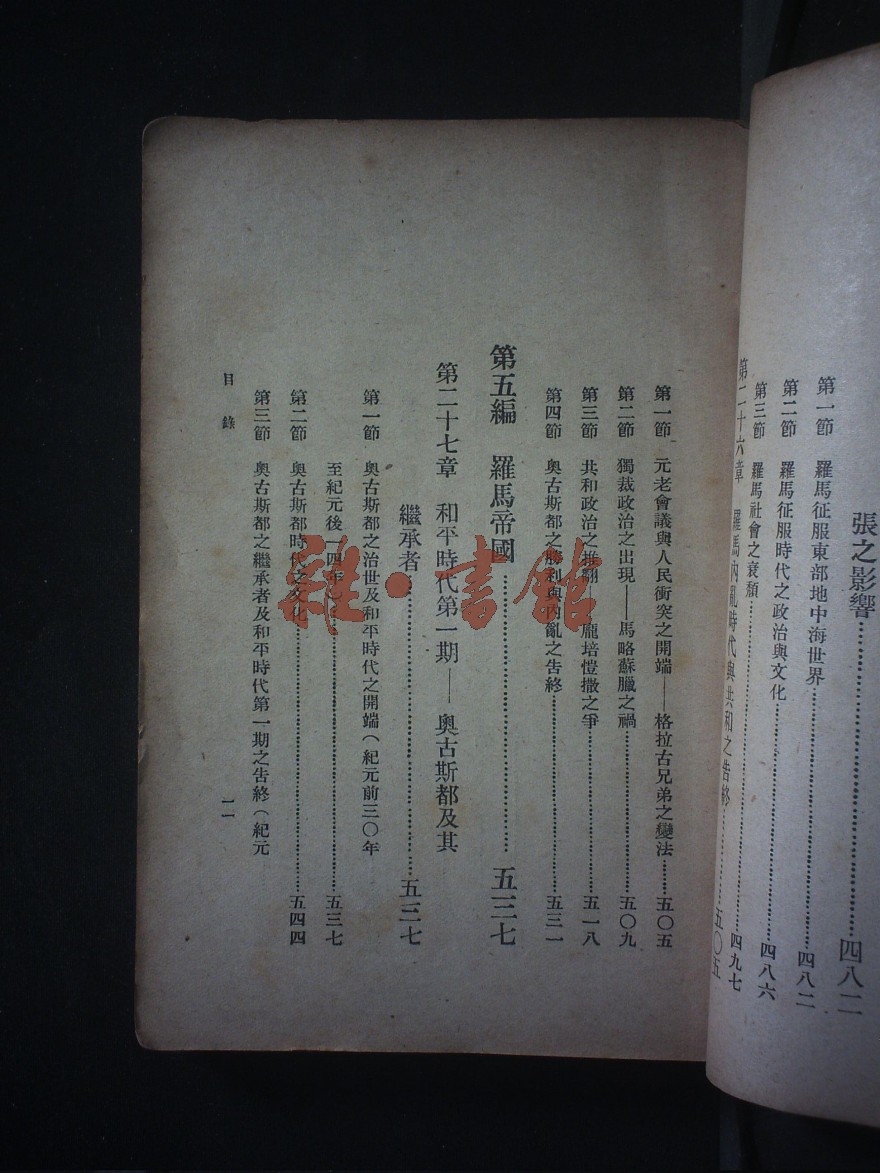 張之影響……四八二
第一節　羅馬征服東部地中海世界……四八二
第二節　羅馬征服時代之政治與文化……四八六
第三節　羅馬社會之衰頹……四九七
第二十六章　羅馬內亂時代與共和之告終……五〇五
第一節　元老會議與人民衝突之開端——格拉古兄弟之變法……五〇五
第二節　獨裁政治之出現——馬略蘇臘之禍……五〇九
第三節　共和政治之推翻——龐培愷撒之爭……五一八
第四節　奧古斯都之勝利與內亂之告終……五三一
第五編　羅馬帝國……五三七
第二十七章　和平時代第一期——奧古斯都及其
繼承者……五三七
第一節　奧古斯都之治世及和平時代之開端（紀元前三〇年
至紀元後一四年）……五三七
第二節　奧古斯都時代之文化……五四四
第三節　奧古斯都之繼承者及和平時代第一期之告終（紀元
目錄　一一
雜·書館